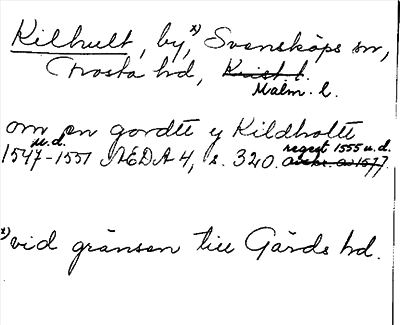 Kilhult, by, x) Svensköps sn,
Frosta hd, Krist. l.
Malm. l.
om en gordtt y Kildholtt
u.d. regest 1555 u.d.
1547-1551 NEDA 4, s. 320. avskr. av 1577.
x) vid gränsen till Gärds hd.